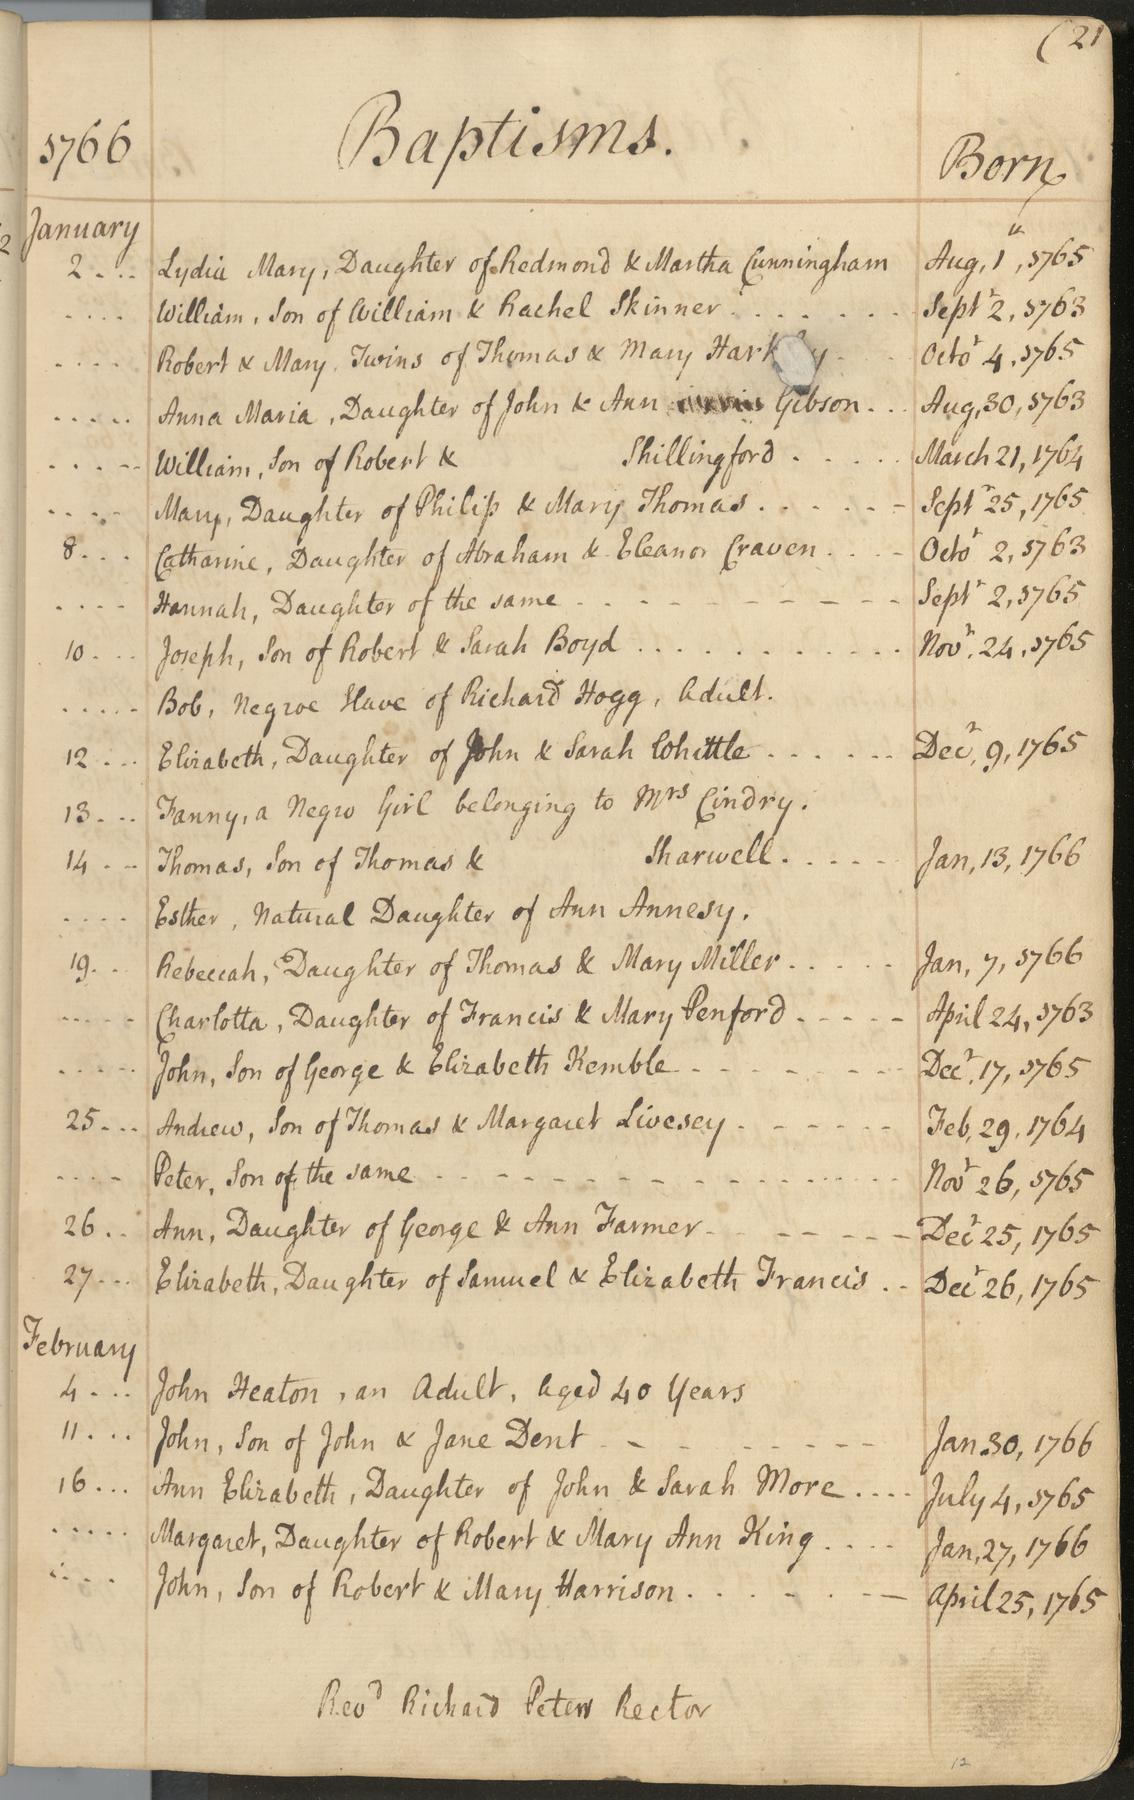 (21
1766 Baptisms. Born
January
2 .... Lydia Mary, Daughter of Redmond & Martha Cunningham Aug, 1st, 1765
.... William, Son of William & Rachel Skinner . . . . . . . Septr 2, 1763
.... Robert & Mary. Twins of Thomas & Mary Octor 4, 1765
..... Anna Maria, Daughter of John & Ann Gibson... Aug, 30, 1763
..... William, Son of Robert & Shillingford ..... March 21, 1764
.... Mary, Daughter of Philip & Mary Thomas ...... Septr 25, 1765
8.... Catharine, Daughter of Abraham & Eleanor Craven .... Octor 2, 1763
.... Hannah, Daughter of the same - - - - - - - - Septr 2, 1765
10.... Joseph, Son of Robert & Sarah Boyd ........... Novr. 24, 1765
..... Bob, Negroe Slave of Richard Hogg, Adult.
12... Elizabeth, Daughter of John & Sarah Whittle ...... Decr, 9, 1765
13... Fanny, a Negro Girl belonging to Mrs Cindry.
14 -- Thomas, Son of Thomas & Sharwell ..... Jan, 13, 1766
.... Esther, Natural Daughter of Ann Annesy.
19.. Rebeccah, Daughter of Thomas & Mary Miller ..... Jan, 7, 1766
..... Charlotta, Daughter of Francis & Mary Penford ----- April 24, 1763
..... John, Son of George & Elizabeth Kemble - - - - - - - Decr, 17, 1765
25... Andrew, Son of Thomas & Margaret Livesey ------ Feb, 29, 1764
.... Peter, Son of the same - - - - - - - - - - Novr 26, 1765
26.. Ann, Daughter of George & Ann Farmer - - - - - - Decr 25, 1765
27... Elizabeth, Daughter of Samuel & Elizabeth Francis .. Decr 26, 1765
February
4 ... John Heaton, an Adult, Aged 40 Years
11 ... John, Son of John & Jane Dent - - - - - - - - Jan. 30, 1766
16 ... Ann Elizabeth, Daughter of John & Sarah More .... July 4, 1765
..... Margaret, Daughter of Robert & Mary Ann King .... Jan, 27, 1766
.... John, Son of Robert & Mary Harrison ....... April 25, 1765
Revd Richard Peters Rector
12